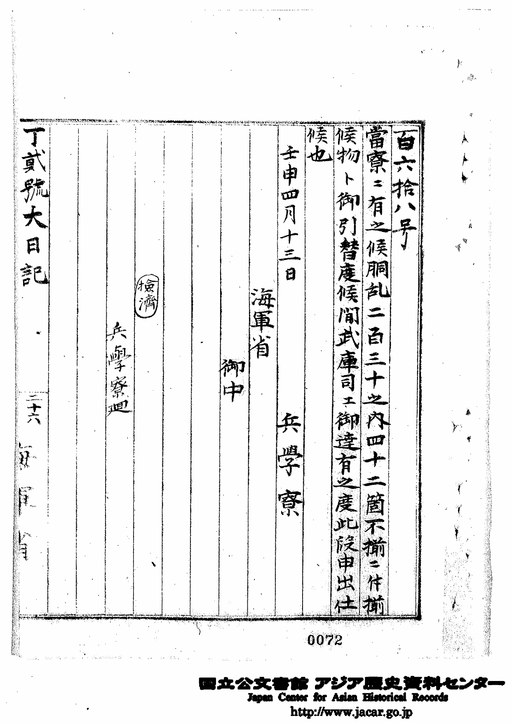 百六拾八号
當寮ニ有之候胴乱二百三十之内四十二箇不揃ニ付揃
候物ト御引替度候間武庫司エ御達有之度此段申出仕
候也
壬申四月十三日
兵學寮
海軍省
御中
檢濟
兵學寮廻
丁貳號大日記
二十六
海軍省
0072
国立公文書館 アジア歴史資料センター
Japan Center for Asian Historical Records
http://www.jacar.go.jp